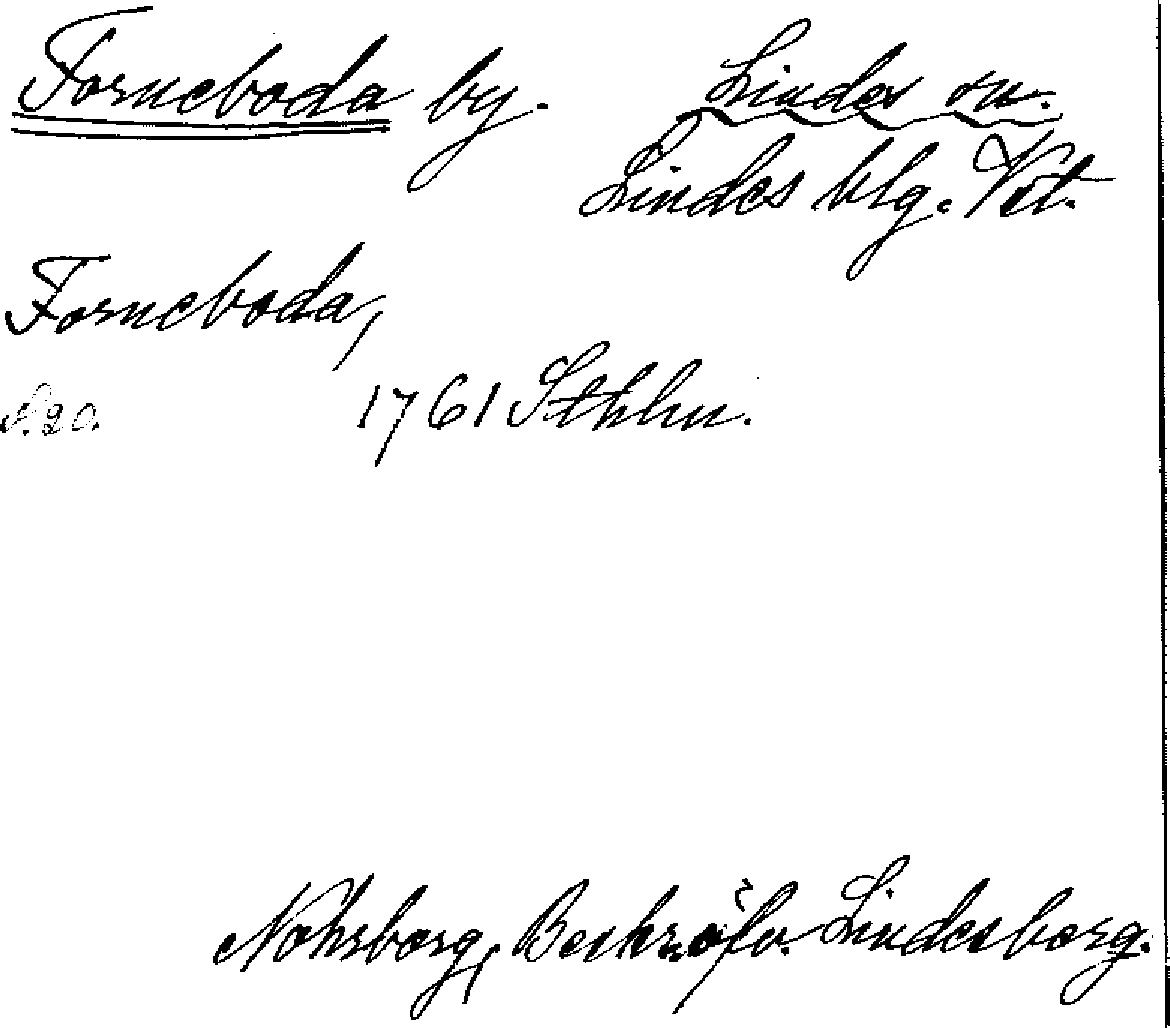 Forneboda by. Lindes sn.
Lindes blg. Vst.
Forneboda,
S. 20. 1761 Sthlm.
Nohrborg, Beskr. öfv. Lindesborg.